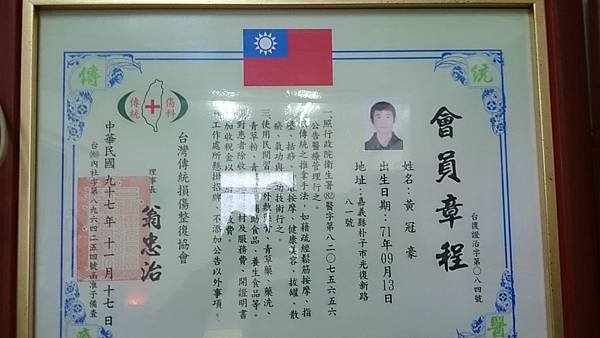 傳
統
傳統
傷科
會員章程
台復證治字第〇八四號
姓名：黃冠豪
出生日期：71年09月13日
地址：嘉義縣朴子市光復新路
八一號
一照行政院衛生署(82)醫字第八二〇七五六五六
公告醫療管理行之。
傳統之推拿手法，如藉疏經鬆筋按摩、指
括痧、按摩、健康美容、拔罐、散
瘀、氣功與功技術行之
三、使用民間習外敷、青草藥、藥洗、
青草粉、青補助食品、養生食品等。
對患者除收材及服務費、開證明書
加收稅金以費。
工作處所懸掛招牌、不添加公告以外事項。
台灣傳統損傷整復協會
理事長
翁忠治
中華民國九十七年十一月十七日
內社字第八九六四二五四號函准予備查
醫